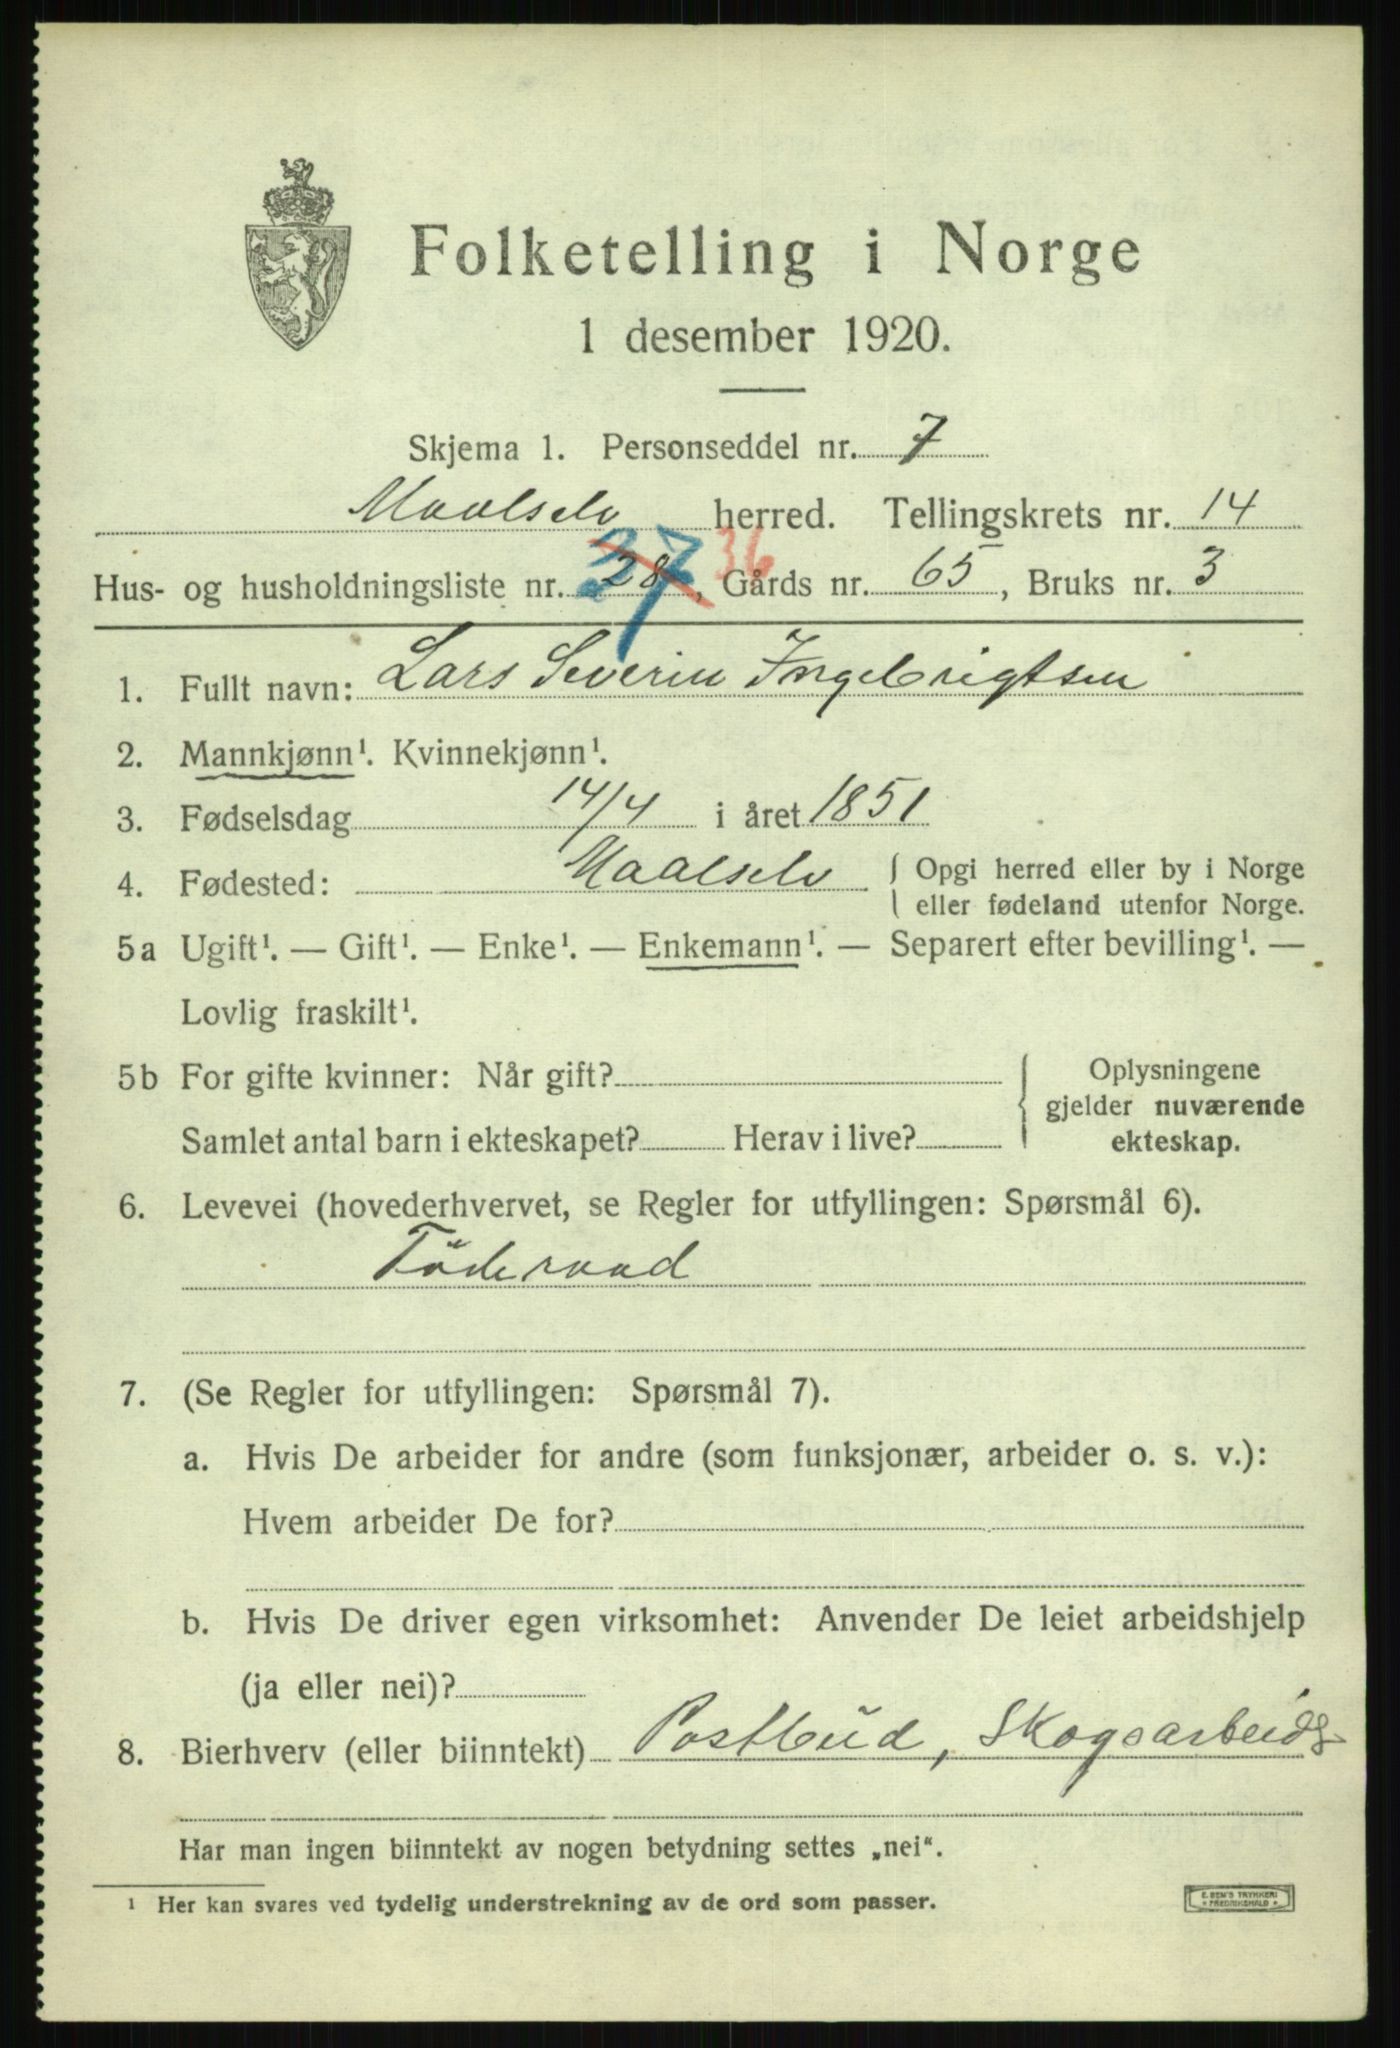 Folketelling i Norge
1 desember 1920.
Skjema 1. Personseddel nr. 7
Maalselv herred. Tellingskrets nr. 14
Hus- og husholdningsliste nr. 28 37 36, Gårds nr. 65, Bruks nr. 3
1. Fullt navn: Lars Severin Ingebrigtsen
2. Mannkjønn¹. Kvinnekjønn¹.
3. Fødselsdag 14/4 i året 1851
4. Fødested: Maalselv { Opgi herred eller by i Norge
eller fødeland utenfor Norge.
5a Ugift¹. — Gift¹. — Enke¹. — Enkemann¹. — Separert efter bevilling¹. —
Lovlig fraskilt¹.
5b For gifte kvinner: Når gift? { Oplysningene
gjelder nuværende
Samlet antal barn i ekteskapet? Herav i live? ekteskap.
6. Levevei (hovederhvervet, se Regler for utfyllingen: Spørsmål 6).
Föderaad
7. (Se Regler for utfyllingen: Spørsmål 7).
a. Hvis De arbeider for andre (som funksjonær, arbeider o. s. v.):
Hvem arbeider De for?
b. Hvis De driver egen virksomhet: Anvender De leiet arbeidshjelp
(ja eller nei)?
8. Bierhverv (eller biinntekt) Postbud, Skogsarbeide
Har man ingen biinntekt av nogen betydning settes „nei“.
¹ Her kan svares ved tydelig understrekning av de ord som passer.
E. SEM'S TRYKKERI
FREDRIKSHALD